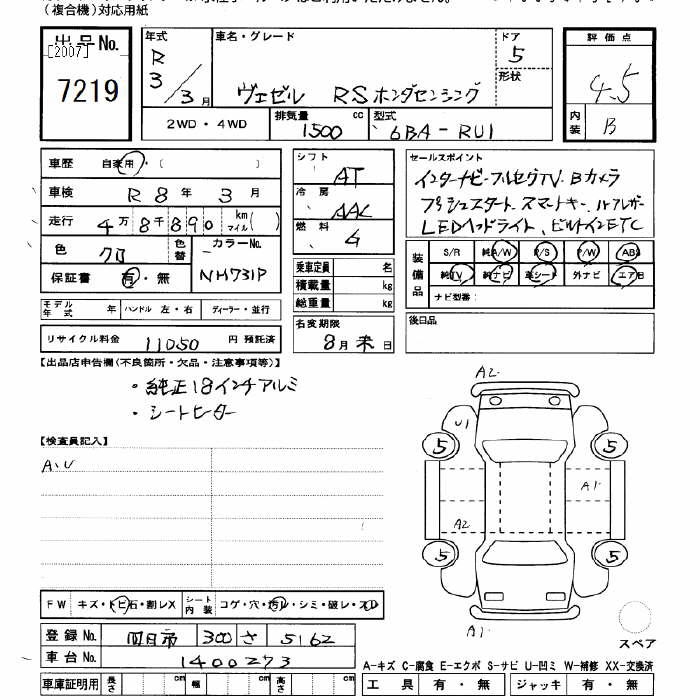 (複合機)対応用紙
出品No.
[2007]
7219
年式 R 3/3月
車名・グレード
ヴェゼル RSホンダセンシング
ドア 5
形状
評価点 4.5
内装 B
2WD・4WD
排気量 1500 cc
型式 6BA-RU1
車歴 自家用・( )
車検 R 8年 3月
走行 4万8千890 km マイル( )
色 クロ
色替
カラーNo. NH731P
保証書 有・無
モデル年式 年
ハンドル 左・右
ディーラー・並行
リサイクル料金 11050 円 預託済
シフト AT
冷房 AAC
燃料 G
乗車定員 名
積載量 kg
総重量 kg
名変期限
8月末日
セールスポイント
インターナビ・フルセグTV・Bカメラ
プッシュスタート、スマートキー、ルーフレール
LEDヘッドライト、ビルトインETC
装備品
S/R 純A/W P/S P/W ABS
純TV 純ナビ 革シート 外ナビ エアB
ナビ型番:
後日品
【出品店申告欄(不良箇所・欠品・注意事項等)】
・純正18インチアルミ
・シートヒーター
【検査員記入】
A、U
A2
U1
5
5
A1
A2
5
5
A1
スペア
FW キズ・トビ石・割レX
シート内装 コゲ・穴・汚レ・シミ・破レ・スレ
登録No. 四日市 300 さ 5162
車台No. 1400273
A-キズ C-腐食 E-エクボ S-サビ U-凹ミ W-補修 XX-交換済
車庫証明用 長さ cm 幅 cm 高さ cm
工具 有・無 ジャッキ 有・無